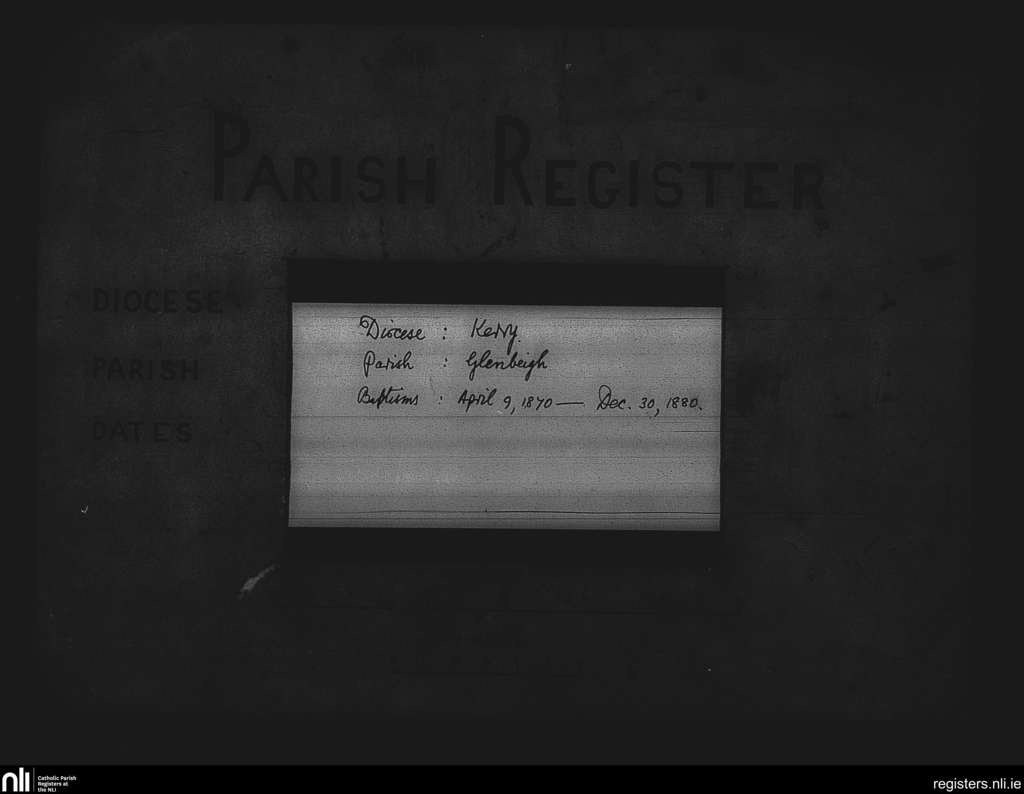 PARISH REGISTER
DIOCESE
PARISH
DATES
Diocese : Kerry
Parish : Glenbeigh
Baptisms : April 9, 1870 — Dec. 30, 1880.
nli
Catholic Parish
Registers at
the NLI
registers.nli.ie